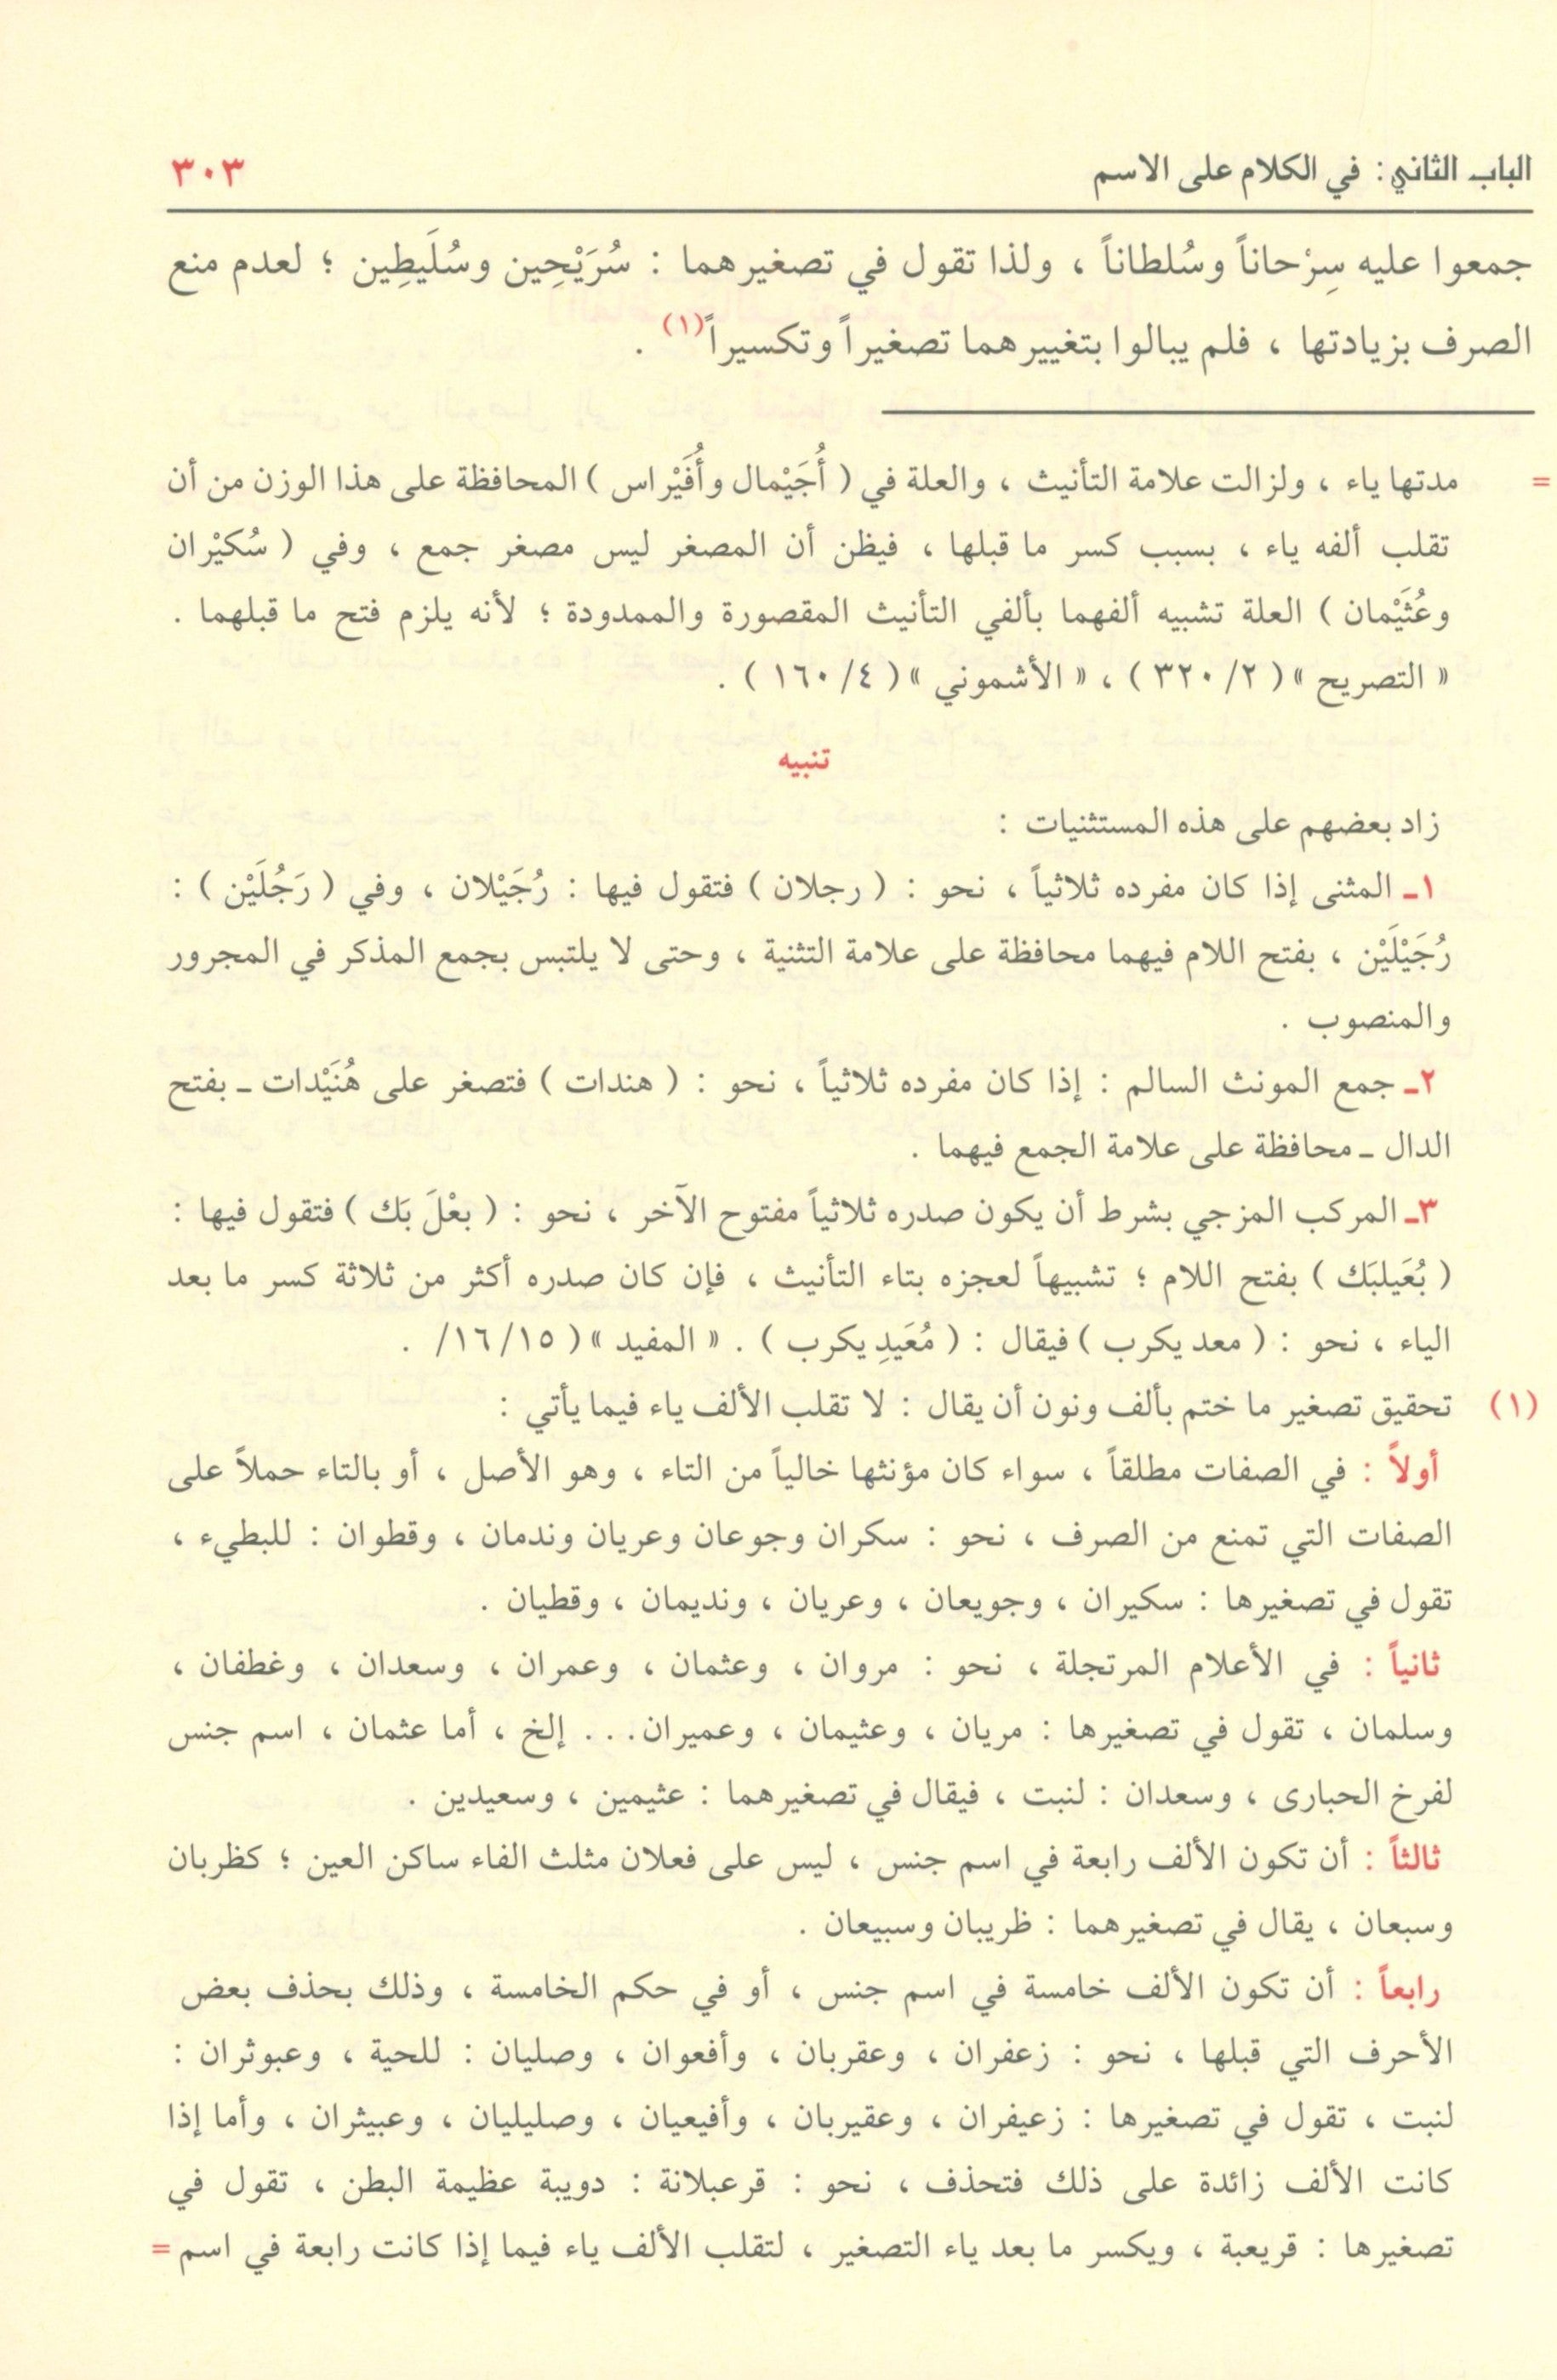 الباب الثاني: في الكلام على الاسم ٣٠٣
جمعوا عليه سِرْحاناً وسُلطاناً ، ولذا تقول في تصغيرهما : سُرَيْحِين وسُلَيطِين ؛ لعدم منع
الصرف بزيادتها ، فلم يبالوا بتغييرهما تصغيراً وتكسيراً(١) .
= مدتها ياء ، ولزالت علامة التأنيث ، والعلة في ( أُجَيْمال وأُفَيْراس ) المحافظة على هذا الوزن من أن
تقلب ألفه ياء ، بسبب كسر ما قبلها ، فيظن أن المصغر ليس مصغر جمع ، وفي ( سُكيْران
وعُثَيْمان ) العلة تشبيه ألفهما بألفي التأنيث المقصورة والممدودة ؛ لأنه يلزم فتح ما قبلهما .
« التصريح » ( ٢/ ٣٢٠ ) ، « الأشموني » ( ٤/ ١٦٠ ) .
تنبيه
زاد بعضهم على هذه المستثنيات :
١ـ المثنى إذا كان مفرده ثلاثياً ، نحو : ( رجلان ) فتقول فيها : رُجَيْلان ، وفي ( رَجُلَيْن ) :
رُجَيْلَيْن ، بفتح اللام فيهما محافظة على علامة التثنية ، وحتى لا يلتبس بجمع المذكر في المجرور
والمنصوب .
٢ـ جمع المونث السالم : إذا كان مفرده ثلاثياً ، نحو : ( هندات ) فتصغر على هُنَيْدات ـ بفتح
الدال ـ محافظة على علامة الجمع فيهما .
٣ـ المركب المزجي بشرط أن يكون صدره ثلاثياً مفتوح الآخر ، نحو : ( بعْلَ بَك ) فتقول فيها :
( بُعَيلبَك ) بفتح اللام ؛ تشبيهاً لعجزه بتاء التأنيث ، فإن كان صدره أكثر من ثلاثة كسر ما بعد
الياء ، نحو : ( معد يكرب ) فيقال : ( مُعَيدِ يكرب ) . « المفيد » ( ١٥/ ١٦/ .
(١) تحقيق تصغير ما ختم بألف ونون أن يقال : لا تقلب الألف ياء فيما يأتي :
أولاً : في الصفات مطلقاً ، سواء كان مؤنثها خالياً من التاء ، وهو الأصل ، أو بالتاء حملاً على
الصفات التي تمنع من الصرف ، نحو : سكران وجوعان وعريان وندمان ، وقطوان : للبطيء ،
تقول في تصغيرها : سكيران ، وجويعان ، وعريان ، ونديمان ، وقطيان .
ثانياً : في الأعلام المرتجلة ، نحو : مروان ، وعثمان ، وعمران ، وسعدان ، وغطفان ،
وسلمان ، تقول في تصغيرها : مريان ، وعثيمان ، وعميران. . . إلخ ، أما عثمان ، اسم جنس
لفرخ الحبارى ، وسعدان : لنبت ، فيقال في تصغيرهما : عثيمين ، وسعيدين .
ثالثاً : أن تكون الألف رابعة في اسم جنس ، ليس على فعلان مثلث الفاء ساكن العين ؛ كظربان
وسبعان ، يقال في تصغيرهما : ظريبان وسبيعان .
رابعاً : أن تكون الألف خامسة في اسم جنس ، أو في حكم الخامسة ، وذلك بحذف بعض
الأحرف التي قبلها ، نحو : زعفران ، وعقربان ، وأفعوان ، وصليان : للحية ، وعبوثران :
لنبت ، تقول في تصغيرها : زعيفران ، وعقيربان ، وأفيعيان ، وصليليان ، وعبيثران ، وأما إذا
كانت الألف زائدة على ذلك فتحذف ، نحو : قرعبلانة : دويبة عظيمة البطن ، تقول في
تصغيرها : قريعبة ، ويكسر ما بعد ياء التصغير ، لتقلب الألف ياء فيما إذا كانت رابعة في اسم =